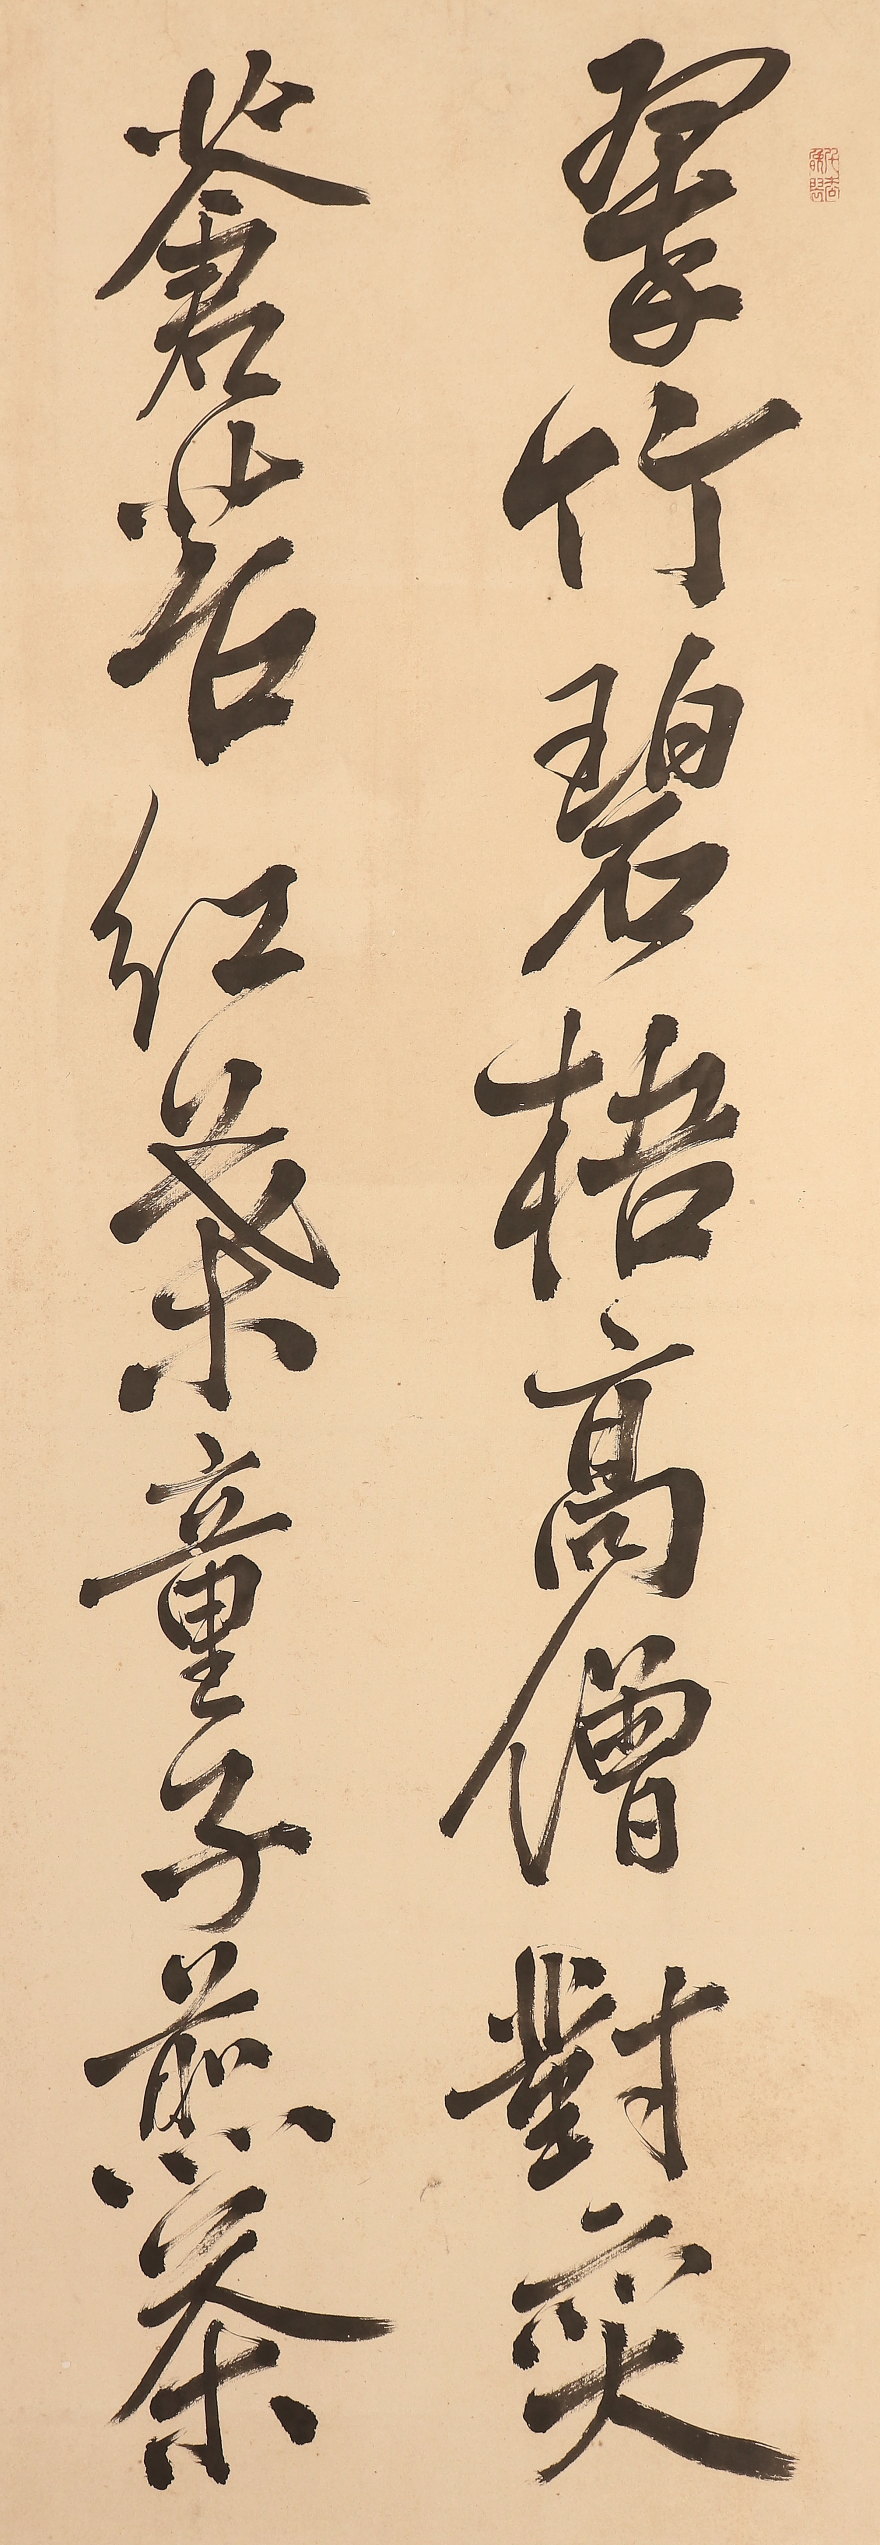 翠竹碧梧高僧對奕
蒼苔紅葉童子煎茶